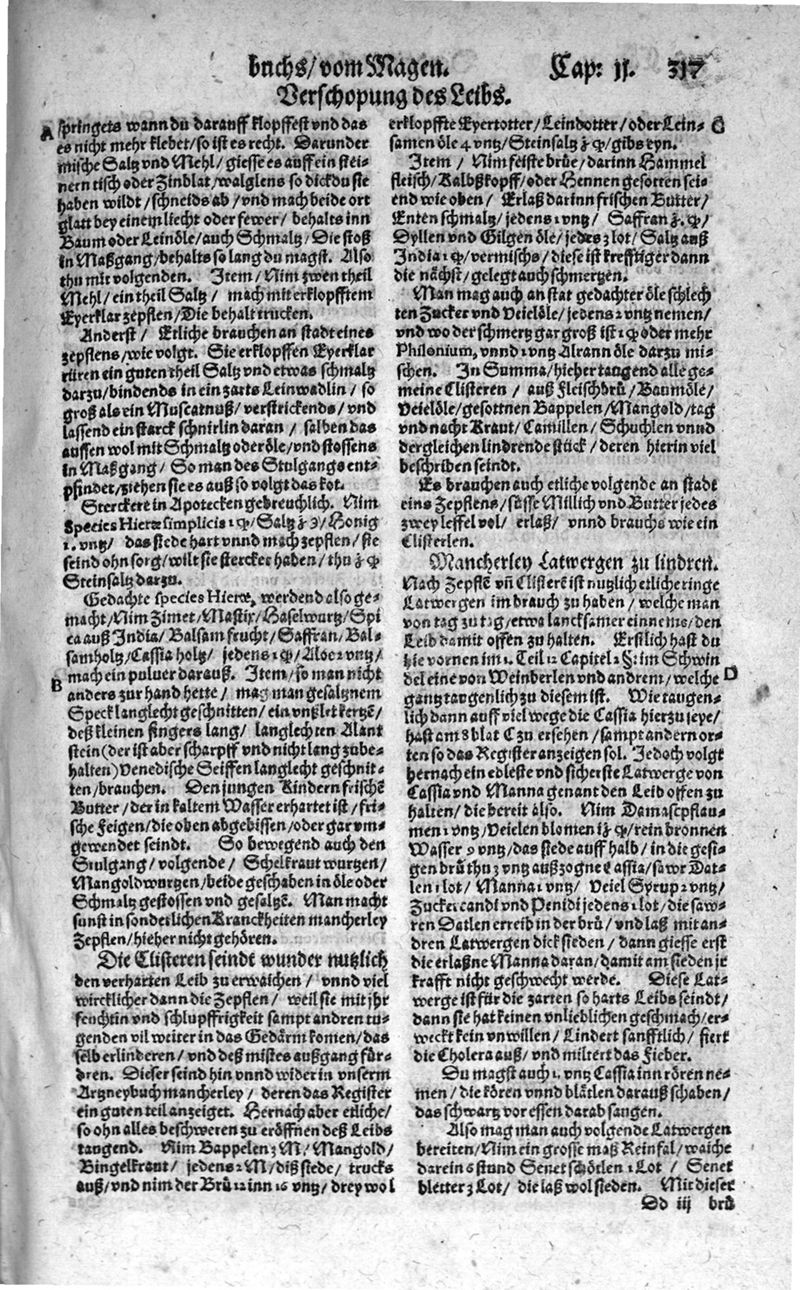 buchs/ vom Magen. Cap: 11. 317
Verschopung des Leibs.
A springets wann du darauff klopffest vnd das
es nicht mehr klebet/ so ist es recht. Darunder
mische Saltz vnd Mehl/ giesse es auff ein stei-
nern tisch oder Zinblat/ walglens so dick du sie
haben wildt/ schneids ab/ vnd mach beide ort
glatt bey einem liecht oder fewer/ behalts inn
Baum oder Leinöle/ auch Schmaltz/ Die stoß
in Maßgang/ behalts so lang du magst. Also
thu mit volgenden. Item/ Nim zwen theil
Mehl/ ein theil Saltz/ mach mit erklopfftem
Eyerklar zepflen/ Die behalt trucken.
Anderst/ Etliche brauchen an stadt eines
zepflens/ wie volgt. Sie erklopffen Eyerklar
rüren ein guten theil Saltz vnd etwas schmaltz
darzu/ bindends in ein zarts Leinwadlin/ so
groß als ein Muscatnuß/ verstrickends/ vnd
lassend ein starck schnirlin daran/ salben das
aussen wol mit Schmaltz oder öle/ vnd stossens
in Maßgang/ So man des Stulgangs ent-
pfindet/ ziehen sie es auß so volgt das kot.
Sterckere in Apotecken gebreuchlich. Nim
Species Hieræ simplicis / Saltz / Honig
1. vntz/ das siede hart vnnd mach zepflen/ sie
seind ohn sorg/ wilt sie stercker haben/ thu
Steinsaltz darzu.
Gedachte species Hieræ, werdend also ge-
macht/ Nim Zimet/ Mastix/ Haselwurtz/ Spi
ca auß India/ Balsam frucht/ Saffran/ Bal-
samholtz/ Cassia holtz/ jedens / Aloe vntz/
mach ein puluer darauß. Item/ so man nicht
B anders zur hand hette/ mag man gesaltznem
Speck langlecht geschnitten/ ein vnszlet kertzē/
deß kleinen fingers lang/ langlechten Alant
stein (der ist aber scharpff vnd nicht lang zube-
halten) Venedische Seiffen langlecht geschnit-
ten/ brauchen. Den jungen Kindern frischē
Butter/ der in kaltem Wasser erhartet ist/ fri-
sche Feigen/ die oben abgebissen/ oder gar vm-
gewendet seindt. So bewegend auch den
Stulgang/ volgende/ Schelkraut wurtzen/
Mangoldwurtzen/ beide geschaben in öle oder
Schmaltz gestossen vnd gesaltzē. Man macht
sunst in sonderlichen Kranckheiten mancherley
Zepflen/ hieher nicht gehören.
Die Clisteren seindt wunder nutzlich
den verharten Leib zu erwaichen/ vnnd viel
wircklicher dann die Zepflen/ weil sie mit jhr
feuchtin vnd schlupffrigkeit sampt andren tu-
genden vil weiter in das Gedärm komen/ das
selb erlinderen/ vnd deß mistes außgang für-
dren. Dieser seind hin vnnd wider in vnserm
Artzneybuch mancherley/ deren das Register
ein guten teil anzeiget. Hernach aber etliche/
so ohn alles beschweren zu eröffnen deß Leibs
tangend. Nim Bappelen 2 M/ Mangold/
Bingelkraut/ jedens 1 M/ diß siede/ trucks
auß/ vnd nim der Brü 12 inn 16 vntz/ drey wol
erklopffte Eyertotter/ Leindotter/ oder Lein- C
samen öle 4 vntz/ Steinsaltz / gibs eyn.
Item/ Nim feiste brüe/ darinn Hammel
fleisch/ Kalbßkopff/ oder Hennen gesotten sei-
end wie oben/ Erlaß darinn frischen Butter/
Enten schmaltz/ jedens 1 vntz/ Saffran /
Dyllen vnd Gilgen öle/ jedes 3 lot/ Saltz auß
India / vermischs/ diese ist krefftiger dann
die nächst/ gelegt auch schmertzen.
Man mag auch an stat gedachter öle schlech
ten Zucker vnd Veielöle/ jedens 2 vntz nemen/
vnd wo der schmertz gar groß ist oder mehr
Philonium, vnnd 1 vntz Alraun öle darzu mi-
schen. In Summa/ hieher tangend alle ge-
meine Clisteren/ auß Fleischbrü/ Baumöle/
Veielöle/ gesottnen Bappelen/ Mangold/ tag
vnd nacht Kraut/ Camillen/ Schuchlen vnnd
dergleichen lindrende stück/ deren hierin viel
beschriben seindt.
Es brauchen auch etliche volgende an stadt
eins Zepflens/ süsse Millich vnd Butter jedes
zwey leffel vol/ erlaß/ vnnd brauchs wie ein
Clisterlen.
Mancherley Latwergen zu lindren.
Nach Zepflē vñ Clisterē ist nutzlich etliche ringe
Latwergen im brauch zu haben/ welche man
von tag zu tag/ etwa lancksamer einnems/ den
Leib damit offen zu halten. Erstlich hast du
hie vornen im 1. Teil 12 Capitel 2 §: im Schwin
del eine von Weinberlen vnd andrem/ welche D
gantz tangenlich zu diesem ist. Wie taugen-
lich dann auff viel wege die Cassia hierzu seye/
hast am 8 blat C zu ersehen/ sampt andern or-
ten so das Register anzeigen sol. Jedoch volgt
hernach ein edleste vnd sicherste Latwerge von
Cassia vnd Manna genant den Leib offen zu
halten/ die bereit also. Nim Damascpflau-
men 1 vntz/ Veielen blomen / rein bronnen
Wasser 9 vntz/ das siede auff halb/ in die gesi-
gen brü thu 2 vntz außzogne Cassia/ sawr Dat-
len 1 lot/ Manna 1 vntz/ Veiel Syrup 2 vntz/
Zucker candi vnd Penidi jedens 1 lot/ die saw-
ren Datlen erreib in der brü/ vnd laß mit an-
dren Latwergen dick sieden/ dann giesse erst
die erlaßne Manna daran/ damit am sieden jr
krafft nicht geschwecht werde. Diese Lat-
werge ist für die zarten so harts Leibs seindt/
dann sie hat keinen vnlieblichen geschmach/ er-
weckt kein vnwillen/ Lindert sanfftlich/ fiert
die Cholera auß/ vnd miltert das Fieber.
Du magst auch 1. vntz Cassia inn rören ne-
men/ die kören vnnd blätlen darauß schaben/
das schwartz vor essen darab saugen.
Also mag man auch volgende Latwergen
bereiten/ Nim ein grosse maß Reinfal/ waiche
darein 6 stund Senet schötlen 1 Lot/ Senet
bletter 3 Lot/ die laß wol sieden. Mit dieser
Dd iij brü